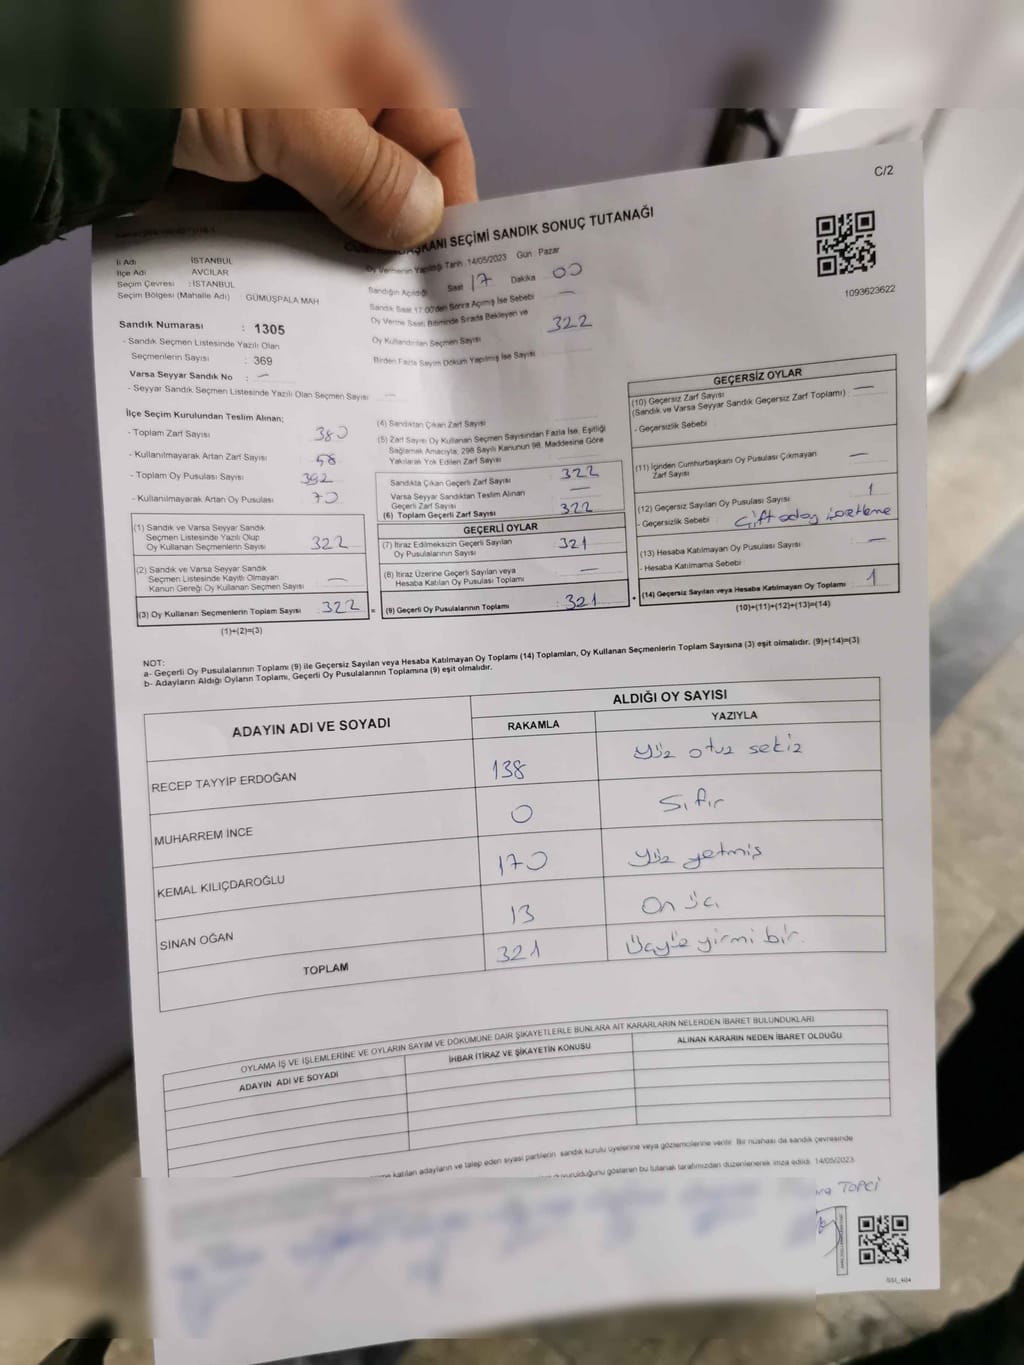 C/2
KANI SEÇİMİ SANDIK SONUÇ TUTANAĞI
İl Adı İSTANBUL
İlçe Adı AVCILAR
Seçim Çevresi : İSTANBUL
Seçim Bölgesi (Mahalle Adı) : GÜMÜŞPALA MAH
Oy Vermenin Yapıldığı Tarih :14/05/2023 Gün : Pazar
Sandığın Açıldığı Saat 17 Dakika 00
Sandık Saat 17:00'den Sonra Açılmış İse Sebebi —
Oy Verme Saati Bitiminde Sırada Bekleyen ve
Oy Kullandırılan Seçmen Sayısı 322
Birden Fazla Sayım Döküm Yapılmış İse Sayısı
1093623622
Sandık Numarası : 1305
- Sandık Seçmen Listesinde Yazılı Olan
Seçmenlerin Sayısı : 369
Varsa Seyyar Sandık No : —
- Seyyar Sandık Seçmen Listesinde Yazılı Olan Seçmen Sayısı —
İlçe Seçim Kurulundan Teslim Alınan;
- Toplam Zarf Sayısı 380
- Kullanılmayarak Artan Zarf Sayısı 58
- Toplam Oy Pusulası Sayısı 392
- Kullanılmayarak Artan Oy Pusulası 70
(1) Sandık ve Varsa Seyyar Sandık
Seçmen Listesinde Yazılı Olup
Oy Kullanan Seçmenlerin Sayısı 322
(2) Sandık ve Varsa Seyyar Sandık
Seçmen Listesinde Kayıtlı Olmayan
Kanun Gereği Oy Kullanan Seçmen Sayısı —
(3) Oy Kullanan Seçmenlerin Toplam Sayısı 322
(1)+(2)=(3)
(4) Sandıktan Çıkan Zarf Sayısı
(5) Zarf Sayısı Oy Kullanan Seçmen Sayısından Fazla İse, Eşitliği
Sağlamak Amacıyla; 298 Sayılı Kanunun 98. Maddesine Göre
Yakılarak Yok Edilen Zarf Sayısı
Sandıkta Çıkan Geçerli Zarf Sayısı 322
Varsa Seyyar Sandıktan Teslim Alınan
Geçerli Zarf Sayısı —
(6) Toplam Geçerli Zarf Sayısı 322
GEÇERLİ OYLAR
(7) İtiraz Edilmeksizin Geçerli Sayılan
Oy Pusulalarının Sayısı 321
(8) İtiraz Üzerine Geçerli Sayılan veya
Hesaba Katılan Oy Pusulası Toplamı —
= (9) Geçerli Oy Pusulalarının Toplamı : 321
GEÇERSİZ OYLAR
(10) Geçersiz Zarf Sayısı
(Sandık ve Varsa Seyyar Sandık Geçersiz Zarf Toplamı) : —
- Geçersizlik Sebebi
(11) İçinden Cumhurbaşkanı Oy Pusulası Çıkmayan
Zarf Sayısı —
(12) Geçersiz Sayılan Oy Pusulası Sayısı 1
- Geçersizlik Sebebi : Çift aday işaretleme
(13) Hesaba Katılmayan Oy Pusulası Sayısı —
- Hesaba Katılmama Sebebi
+ (14) Geçersiz Sayılan veya Hesaba Katılmayan Oy Toplamı 1
(10)+(11)+(12)+(13)=(14)
NOT:
a- Geçerli Oy Pusulalarının Toplamı (9) ile Geçersiz Sayılan veya Hesaba Katılmayan Oy Toplamı (14) Toplamları, Oy Kullanan Seçmenlerin Toplam Sayısına (3) eşit olmalıdır. (9)+(14)=(3)
b- Adayların Aldığı Oyların Toplamı, Geçerli Oy Pusulalarının Toplamına (9) eşit olmalıdır.
ADAYIN ADI VE SOYADI ALDIĞI OY SAYISI
RAKAMLA YAZIYLA
RECEP TAYYİP ERDOĞAN 138 Yüz otuz sekiz
MUHARREM İNCE 0 Sıfır
KEMAL KILIÇDAROĞLU 170 Yüz yetmiş
SİNAN OĞAN 13 On üç
TOPLAM 321 Üçyüz yirmi bir.
OYLAMA İŞ VE İŞLEMLERİNE VE OYLARIN SAYIM VE DÖKÜMÜNE DAİR ŞİKAYETLERLE BUNLARA AİT KARARLARIN NELERDEN İBARET BULUNDUKLARI
ADAYIN ADI VE SOYADI İHBAR İTİRAZ VE ŞİKAYETİN KONUSU ALINAN KARARIN NEDEN İBARET OLDUĞU
katılan adayların ve talep eden siyasi partilerin sandık kurulu üyelerine veya gözlemcilerine verilir. Bir nüshası da sandık çevresinde
duyurulduğunu gösteren bu tutanak tarafımızdan düzenlenerek imza edildi. 14/05/2023
TOPCİ